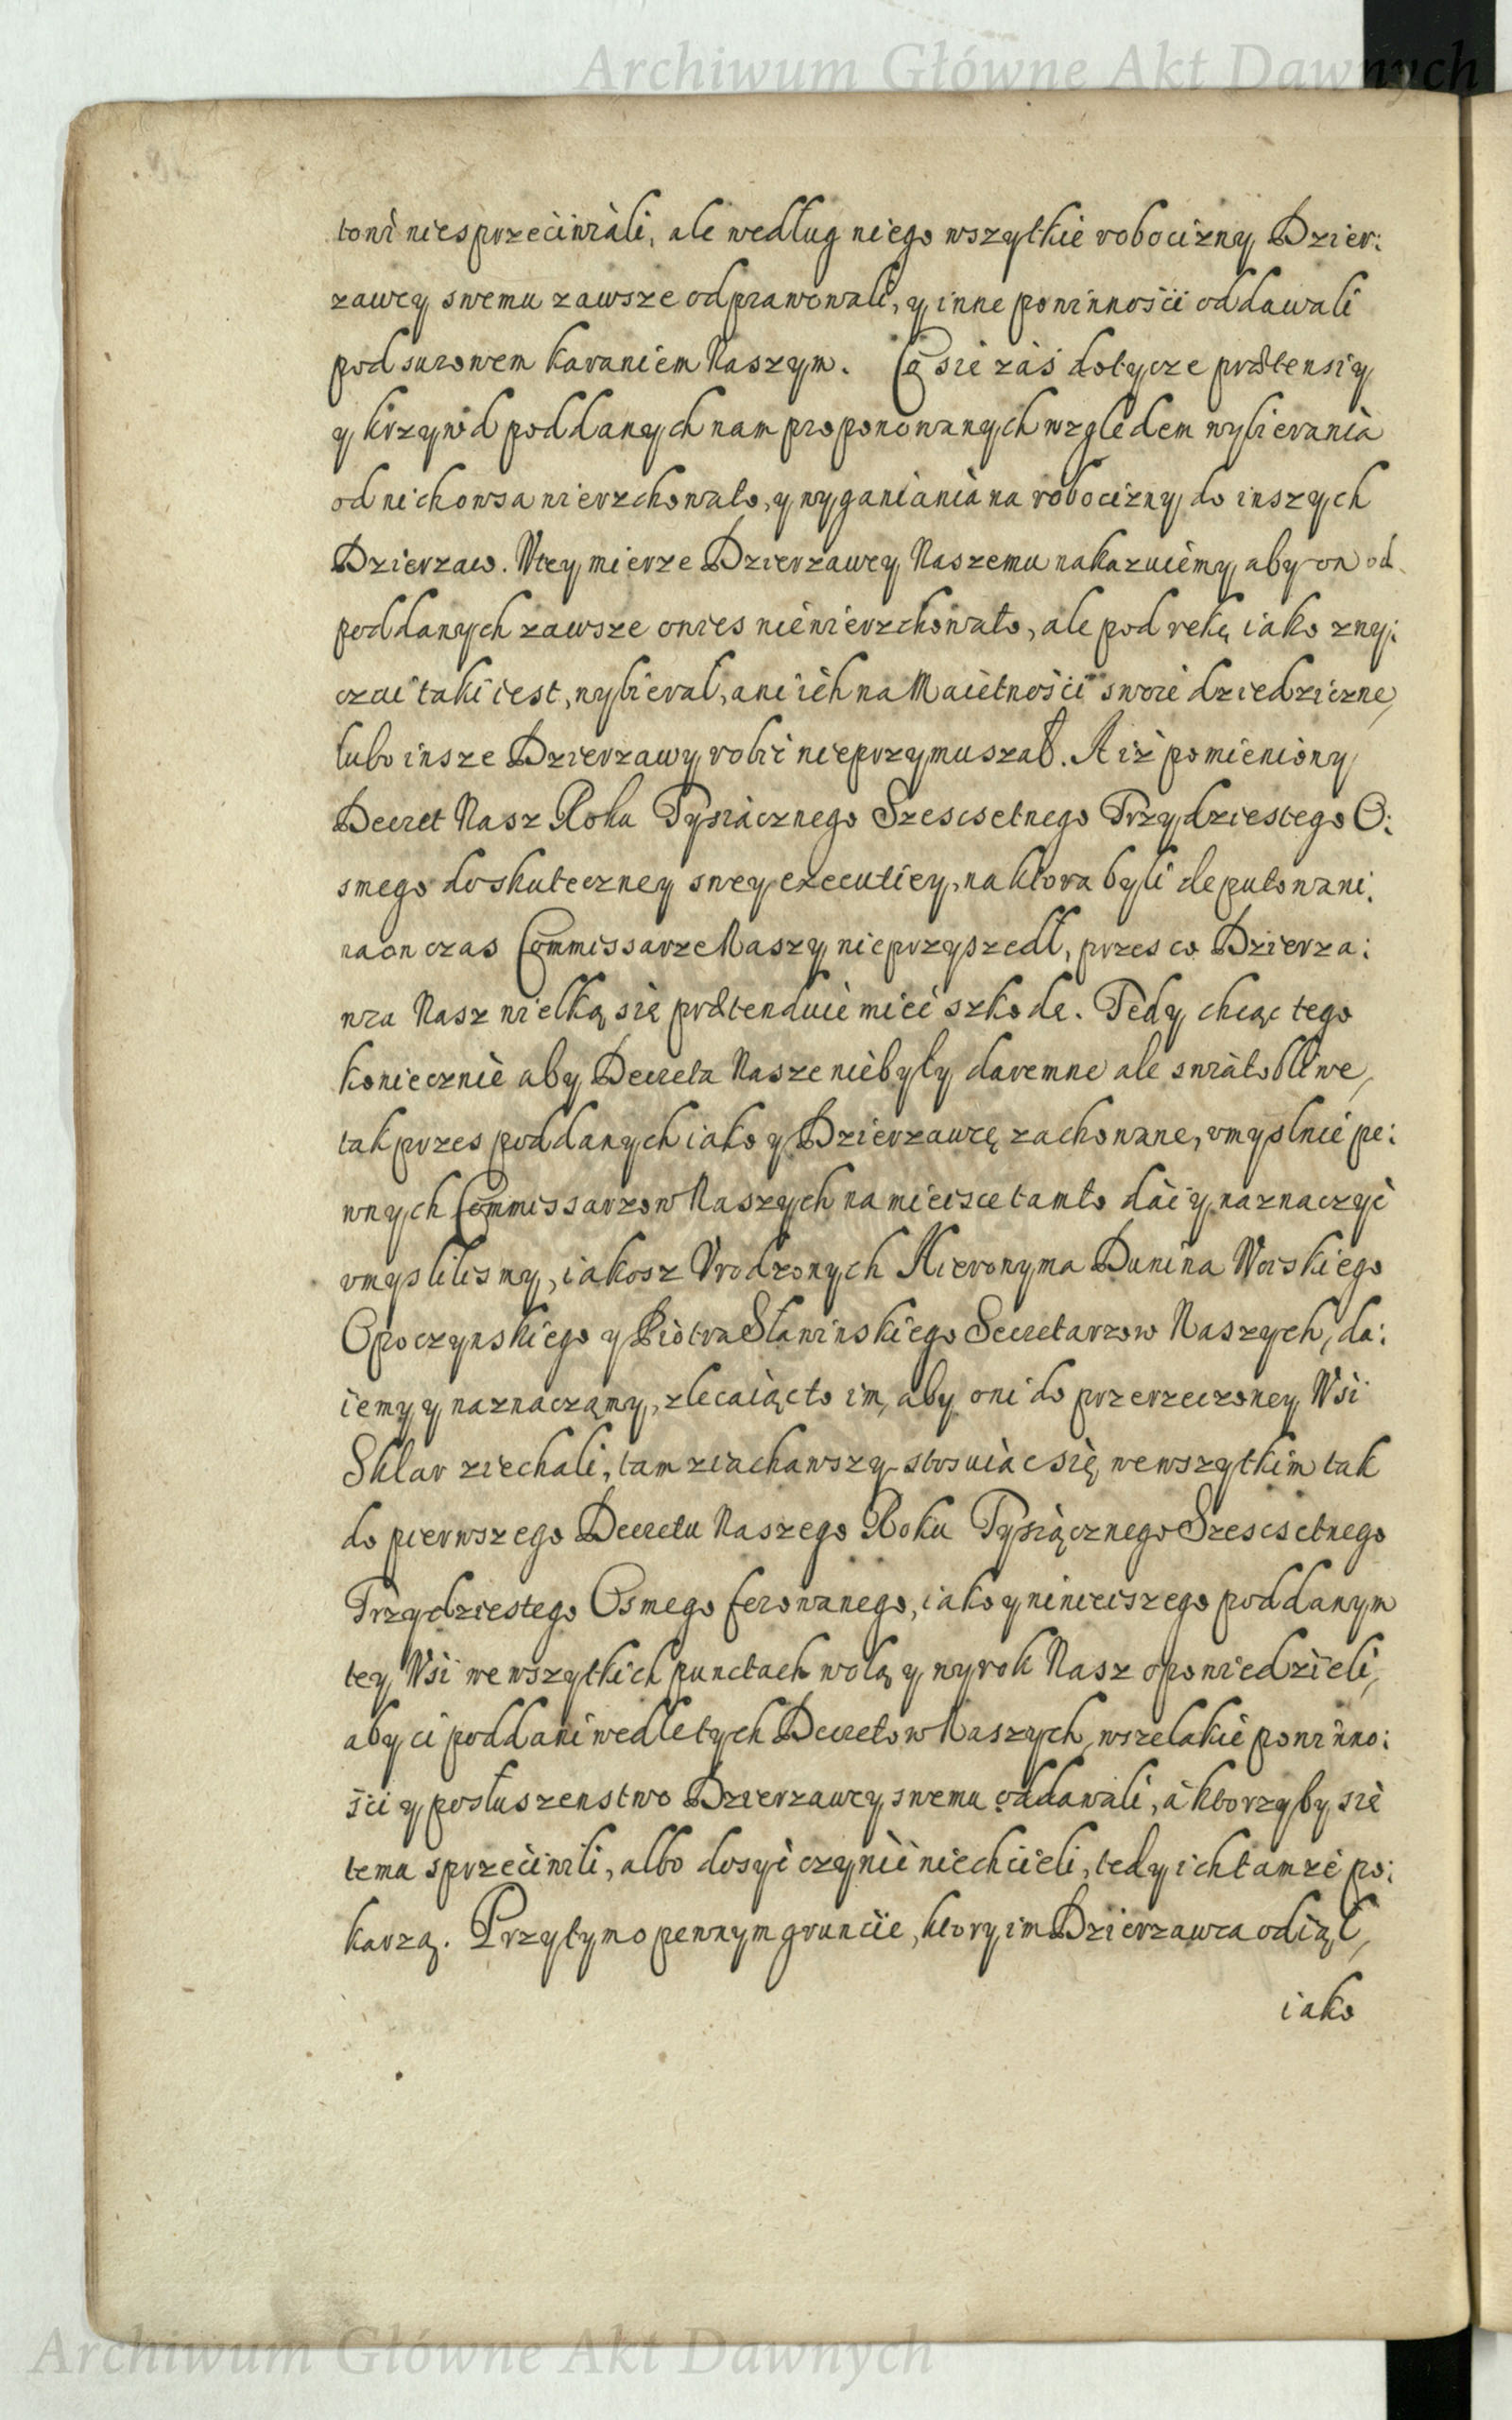 Archiwum Główne Akt Dawnych
towi niesprzeciwiáli, ále według niego wszytkie robocizny Dzier:
zawcy swemu zawsze odprawowali, y inne powinnosći oddawali
pod surowem karaniem Naszym. Co sie záś dotycze prætensiy
y krzywd poddanych nam proponowanych względem wybierania
od nich owsa wierzchowato, y wyganiania na robocizny do inszych
Dzierzaw. W tey mierze Dzierzawcy Naszemu nakazuiemy, aby on od
poddanych zawsze owies niewierzchowato, ale pod rekę iako zwy:
czai taki iest, wybierał, ani ich na Maiętnośći swoie dziedziczne,
lubo insze Dzierzawy robić nieprzymuszał. A iż pomieniony
Decret Nasz Roku Tysiącznego Szescsetnego Trzydziestego O:
smego do skuteczney swey executiey, na ktora byli deputowani
na on czas Commissarze Naszy nieprzyszedł, przes co Dzierza:
wca Nasz wielką się prætenduie mieć szkodę. Tedy chcąc tego
koniecznie aby Decreta Nasze niebyły daremne ale swiątobliwe,
tak przes poddanych iako y Dzierzawcę zachowane, vmyslnie pe:
wnych Commissarzow Naszych na mieisce tamto dáć y naznaczyć
vmyslilismy, iakosz Vrodzonych Hieronyma Dunina Woiskiego
Opoczynskiego y Piotra Sławinskiego Secretarzow Naszych, da:
iemy y naznaczamy, zlecaiąc to im, aby oni do przerzeczoney Wsi
Sklar ziechali, tam ziachawszy stosuiąc się we wszytkim tak
do pierwszego Decretu Naszego Roku Tysiącznego Szescsetnego
Trzydziestego Osmego ferowanego, iako y ninieiszego poddanym
tey Wsi we wszytkich punctach wolą y wyrok Nasz opowiedzieli,
aby ci poddani wedle tych Decretow Naszych, wszelakie powinno:
śći y posłuszenstwo Dzierzawcy swemu oddawali, á ktorzyby się
temu sprzećiwili, albo dosyć czynić niechcieli, tedy ich tamże po:
karzą. Przytym o pewnym grunćie, ktory im Dzierzawca odiął,
iako
Archiwum Główne Akt Dawnych